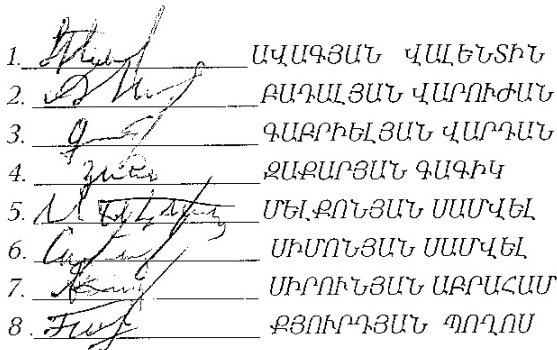 1. ԱՎԱԳՅԱՆ ՎԱԼԵՆՏԻՆ
2. ԲԱԴԱԼՅԱՆ ՎԱՐՈՒԺԱՆ
3. ԳԱԲՐԻԵԼՅԱՆ ՎԱՐԴԱՆ
4. ԶԱՔԱՐՅԱՆ ԳԱԳԻԿ
5. ՄԵԼՔՈՆՅԱՆ ՍԱՄՎԵԼ
6. ՍԻՄՈՆՅԱՆ ՍԱՄՎԵԼ
7. ՍԻՐՈՒՆՅԱՆ ԱԲՐԱՀԱՄ
8. ՔՅՈՒՐԴՅԱՆ ՊՈՂՈՍ